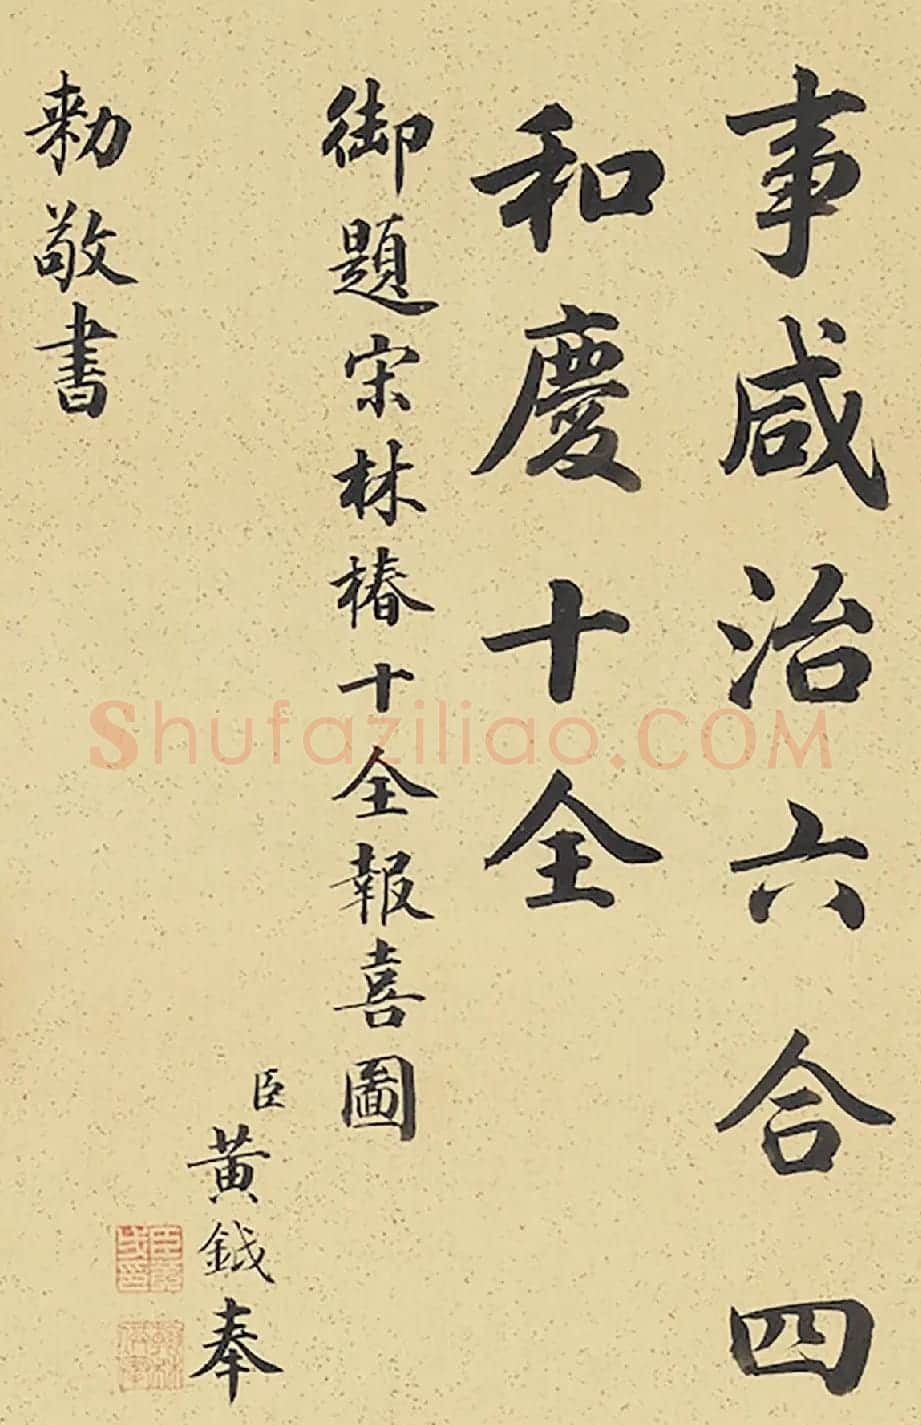 事咸治六合四
和慶十全
御題宋林椿十全報喜圖
臣黃鉞奉
勅敬書
Shufaziliao.COM